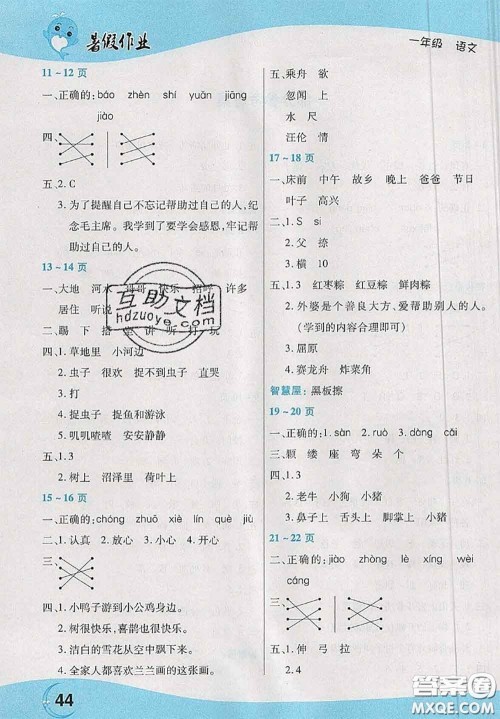 暑假作业
一年级 语文
11~12 页
一、正确的:báo zhèn shí yuǎn jiāng
jiào
四、
五、2. C
3. 为了提醒自己不忘记帮助过自己的人,纪
念毛主席。我学到了要学会感恩,牢记帮
助过自己的人。
13~14 页
一、大地 河水 哥哥 快乐 招呼 许多
居住 听说
二、踢 下 搭 堂 讲 听 打 玩
四、1. 草地里 小河边
2. 虫子 很欢 捉不到 虫子 直哭
3. 打
4. 捉虫子 捉鱼和游泳
5. 叽叽喳喳 安安静静
五、1. √
2. 树上 沼泽里 荷叶上
15~16 页
一、正确的:chóng zhuō xiè lín què jiù
二、1. 认真 2. 放心 3. 开心 4. 小心
三、
四、1. 小鸭子游到小公鸡身边。
2. 树很快乐,喜鹊也很快乐。
3. 洁白的雪花从空中飘下来。
4. 全家人都喜欢兰兰画的这张画。
五、乘舟 欲
忽闻 上
水 尺
汪伦 情
17~18 页
一、床前 中午 故乡 晚上 爸爸 节日
叶子 高兴
二、1. S si
2. 父 捺
3. 横 10
五、1. 3 红枣粽 红豆粽 鲜肉粽
2. 外婆是个善良大方、爱帮助别人的人。
(学到的内容合理即可)
3. 屈原
4. 赛龙舟 炸菜角
智慧屋:黑板擦
19~20 页
一、正确的:1. sàn 2. ruó 3. dāng cǎi
二、颗 缕 座 弯 朵 个
四、1. 3
2. 老牛 小狗 小猪
3. 鼻子上 舌头上 脚掌上 小猪
21~22 页
一、正确的:jiào zhòng lè xíng wèi
cáng
三、
五、1. 伸 弓 拉
2. 4
互助文档
hdzuoye.com
44
答案圈
MXQE.COM